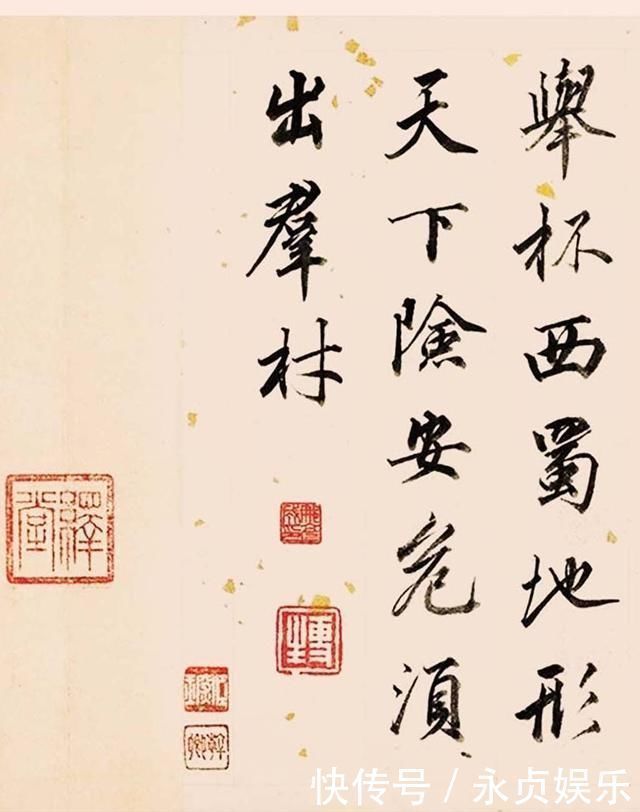 舉杯西蜀地形
天下險安危須
出羣材
快传号／永贞娱乐